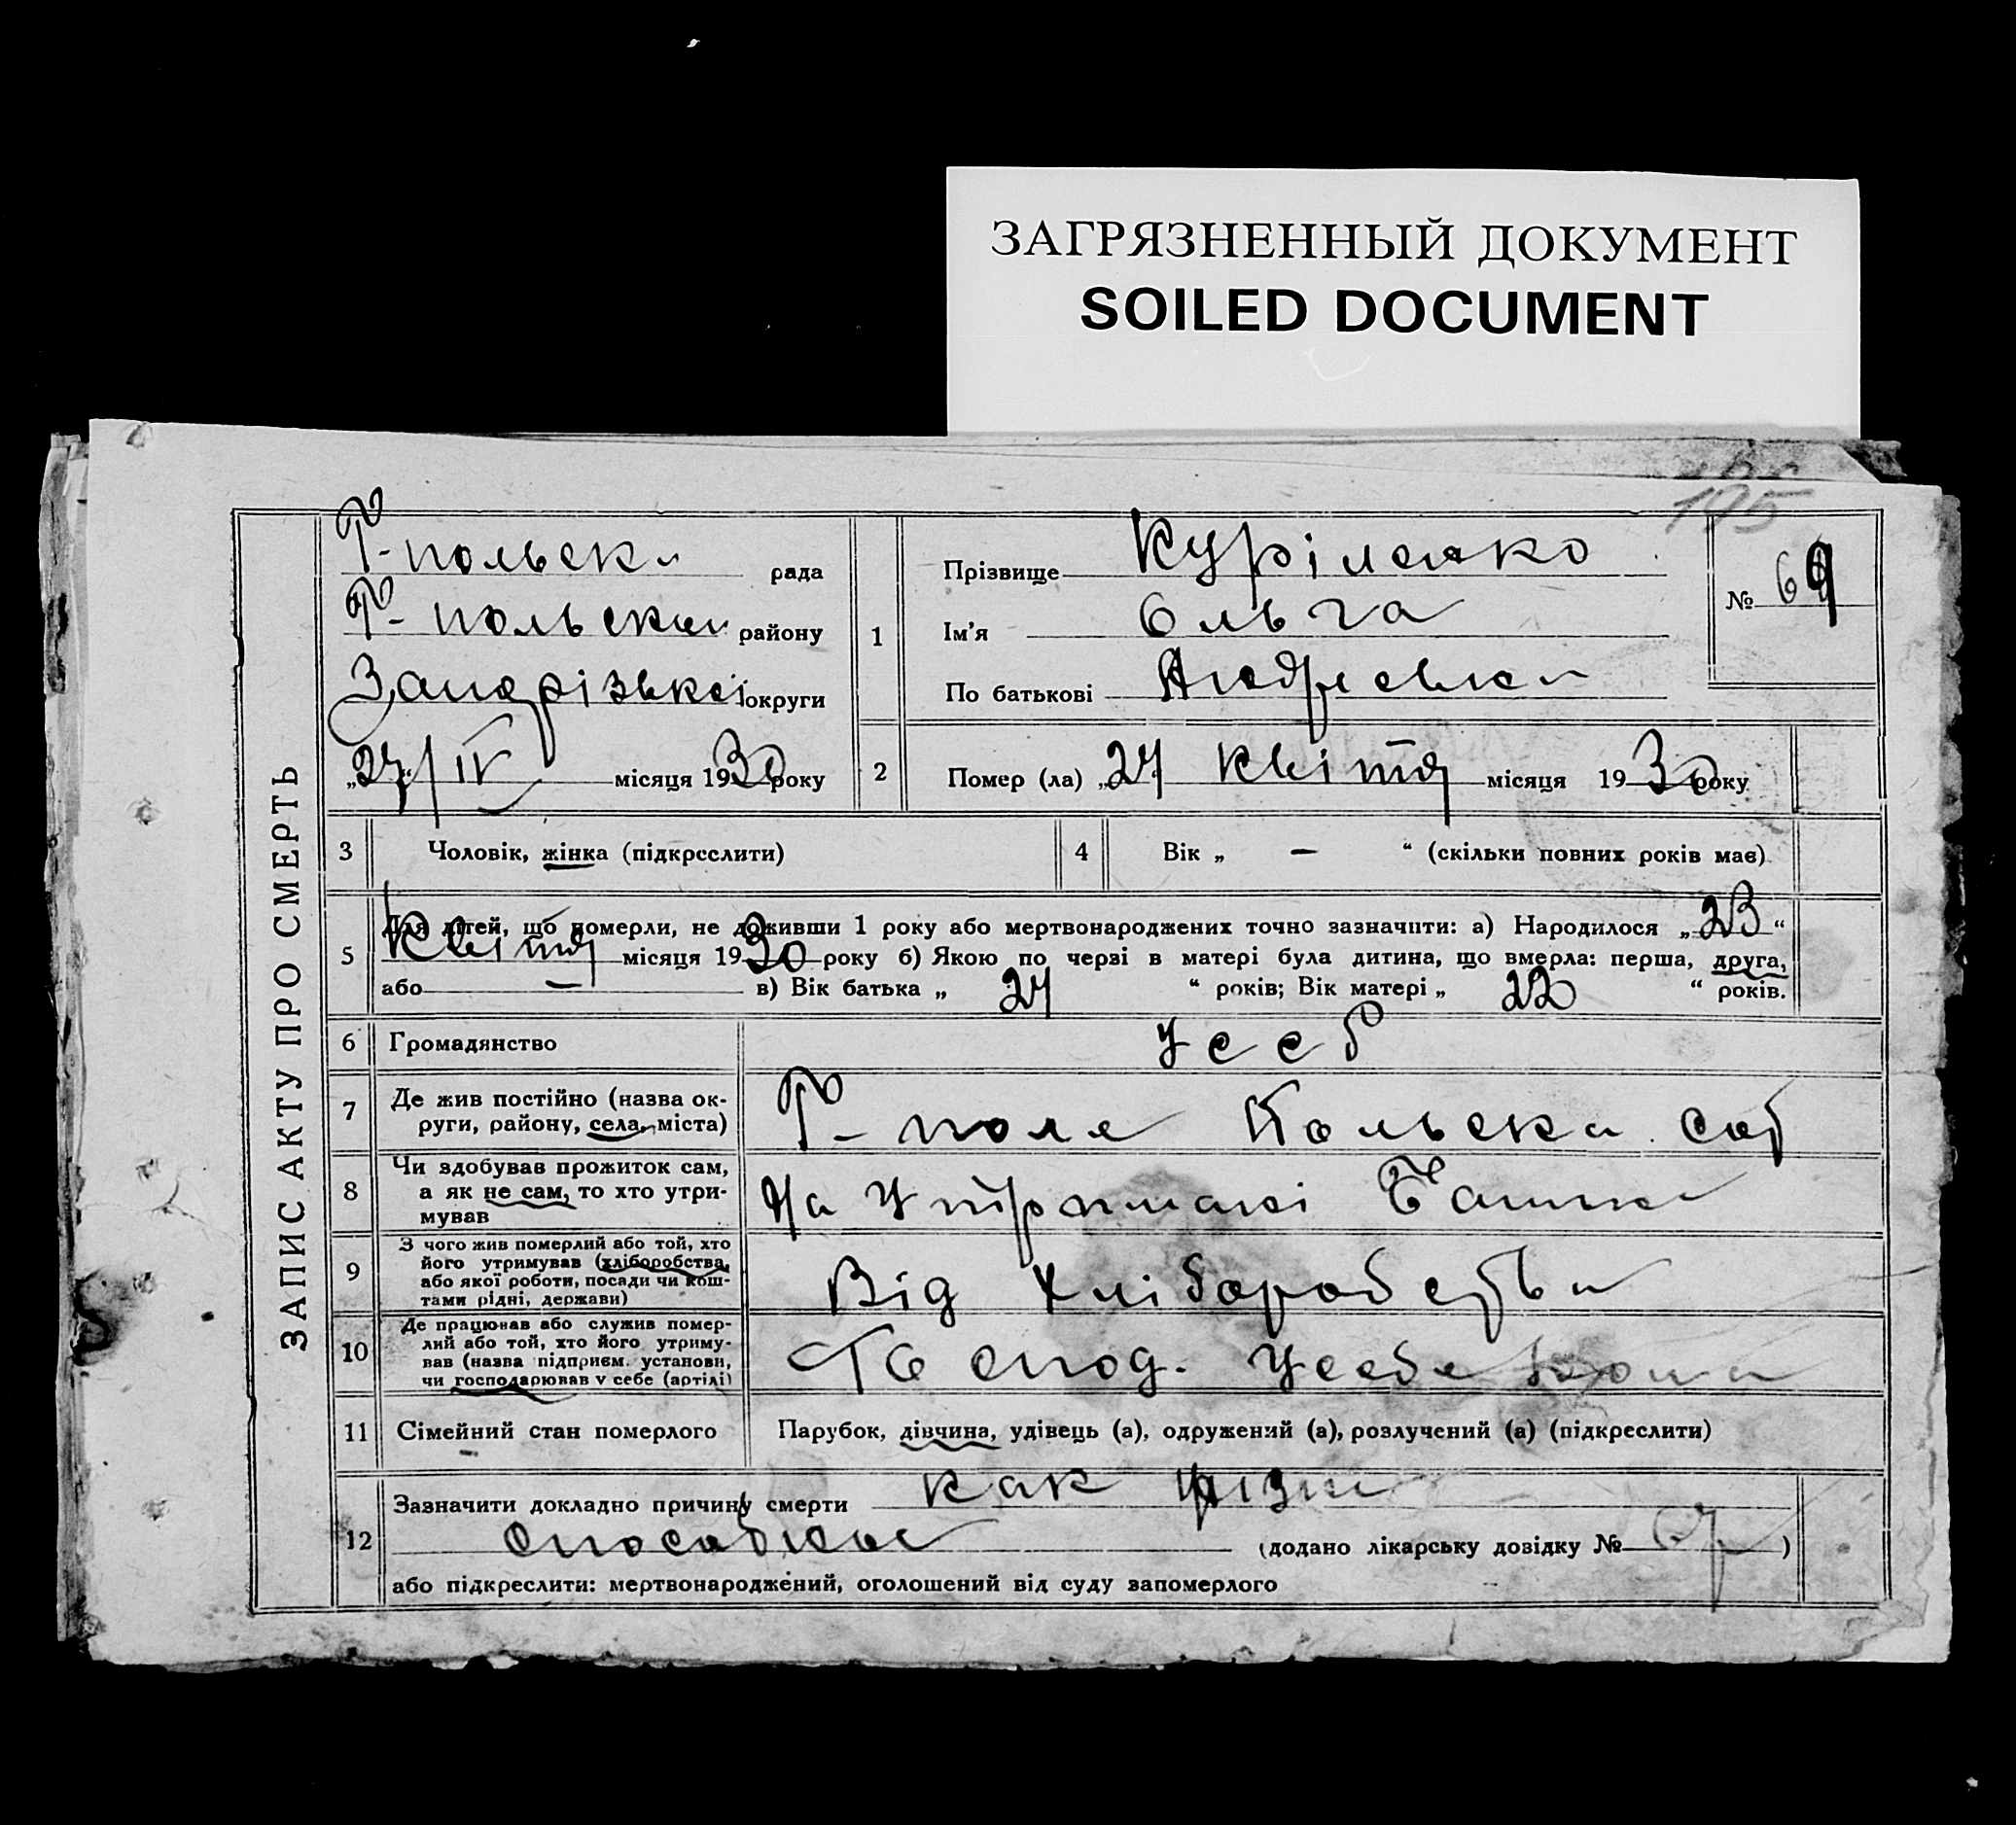 ЗАГРЯЗНЕННЫЙ ДОКУМЕНТ
SOILED DOCUMENT
195
ЗАПИС АКТУ ПРО СМЕРТЬ
Г-польска рада
Г-польськи району
Запорізької округи
„27“/IV місяця 1930 року
1
Прізвище Куріленко
Ім'я Ольга
По батькові Андреевна
№ 69
2
Помер (ла) „27 Квітня місяця 1930 року
3 Чоловік, жінка (підкреслити)
4 Вік „ — “ (скільки повних років має)
5 Для дітей, що померли, не доживши 1 року або мертвонароджених точно зазначити: а) Народилося „23“
Квітня місяця 1930 року б) Якою по черзі в матері була дитина, що вмерла: перша, друга,
або — в) Вік батька „ 27 “ років; Вік матері „ 22 “ років.
6 Громадянство УССР
7 Де жив постійно (назва ок-
руги, району, села, міста)
Г-поле Польска
8 Чи здобував прожиток сам,
а як не сам, то хто утри-
мував
На Утриманні
9 З чого жив померлий або той, хто
його утримував (хліборобства,
або якої роботи, посади чи кош-
тами рідні, держави)
Від Хліборобства
10 Де працював або служив помер-
лий або той, хто його утриму-
вав (назва підприєм. установи,
чи господарював у себе (артілі)
Господ. Усебе
11 Сімейний стан померлого Парубок, дівчина, удівець (а), одружений (а), розлучений (а) (підкреслити)
12 Зазначити докладно причину смерти
(додано лікарську довідку № 67)
або підкреслити: мертвонароджений, оголошений від суду запомерлого